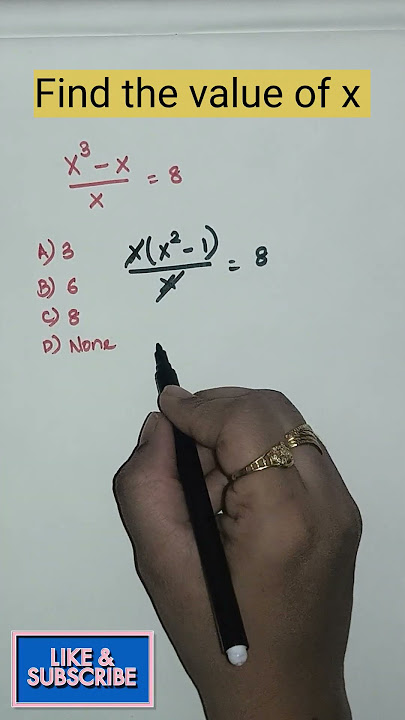 Find the value of x
x³ - x / x = 8
A) 3
B) 6
C) 8
D) None
x(x² - 1) / x = 8
LIKE &
SUBSCRIBE